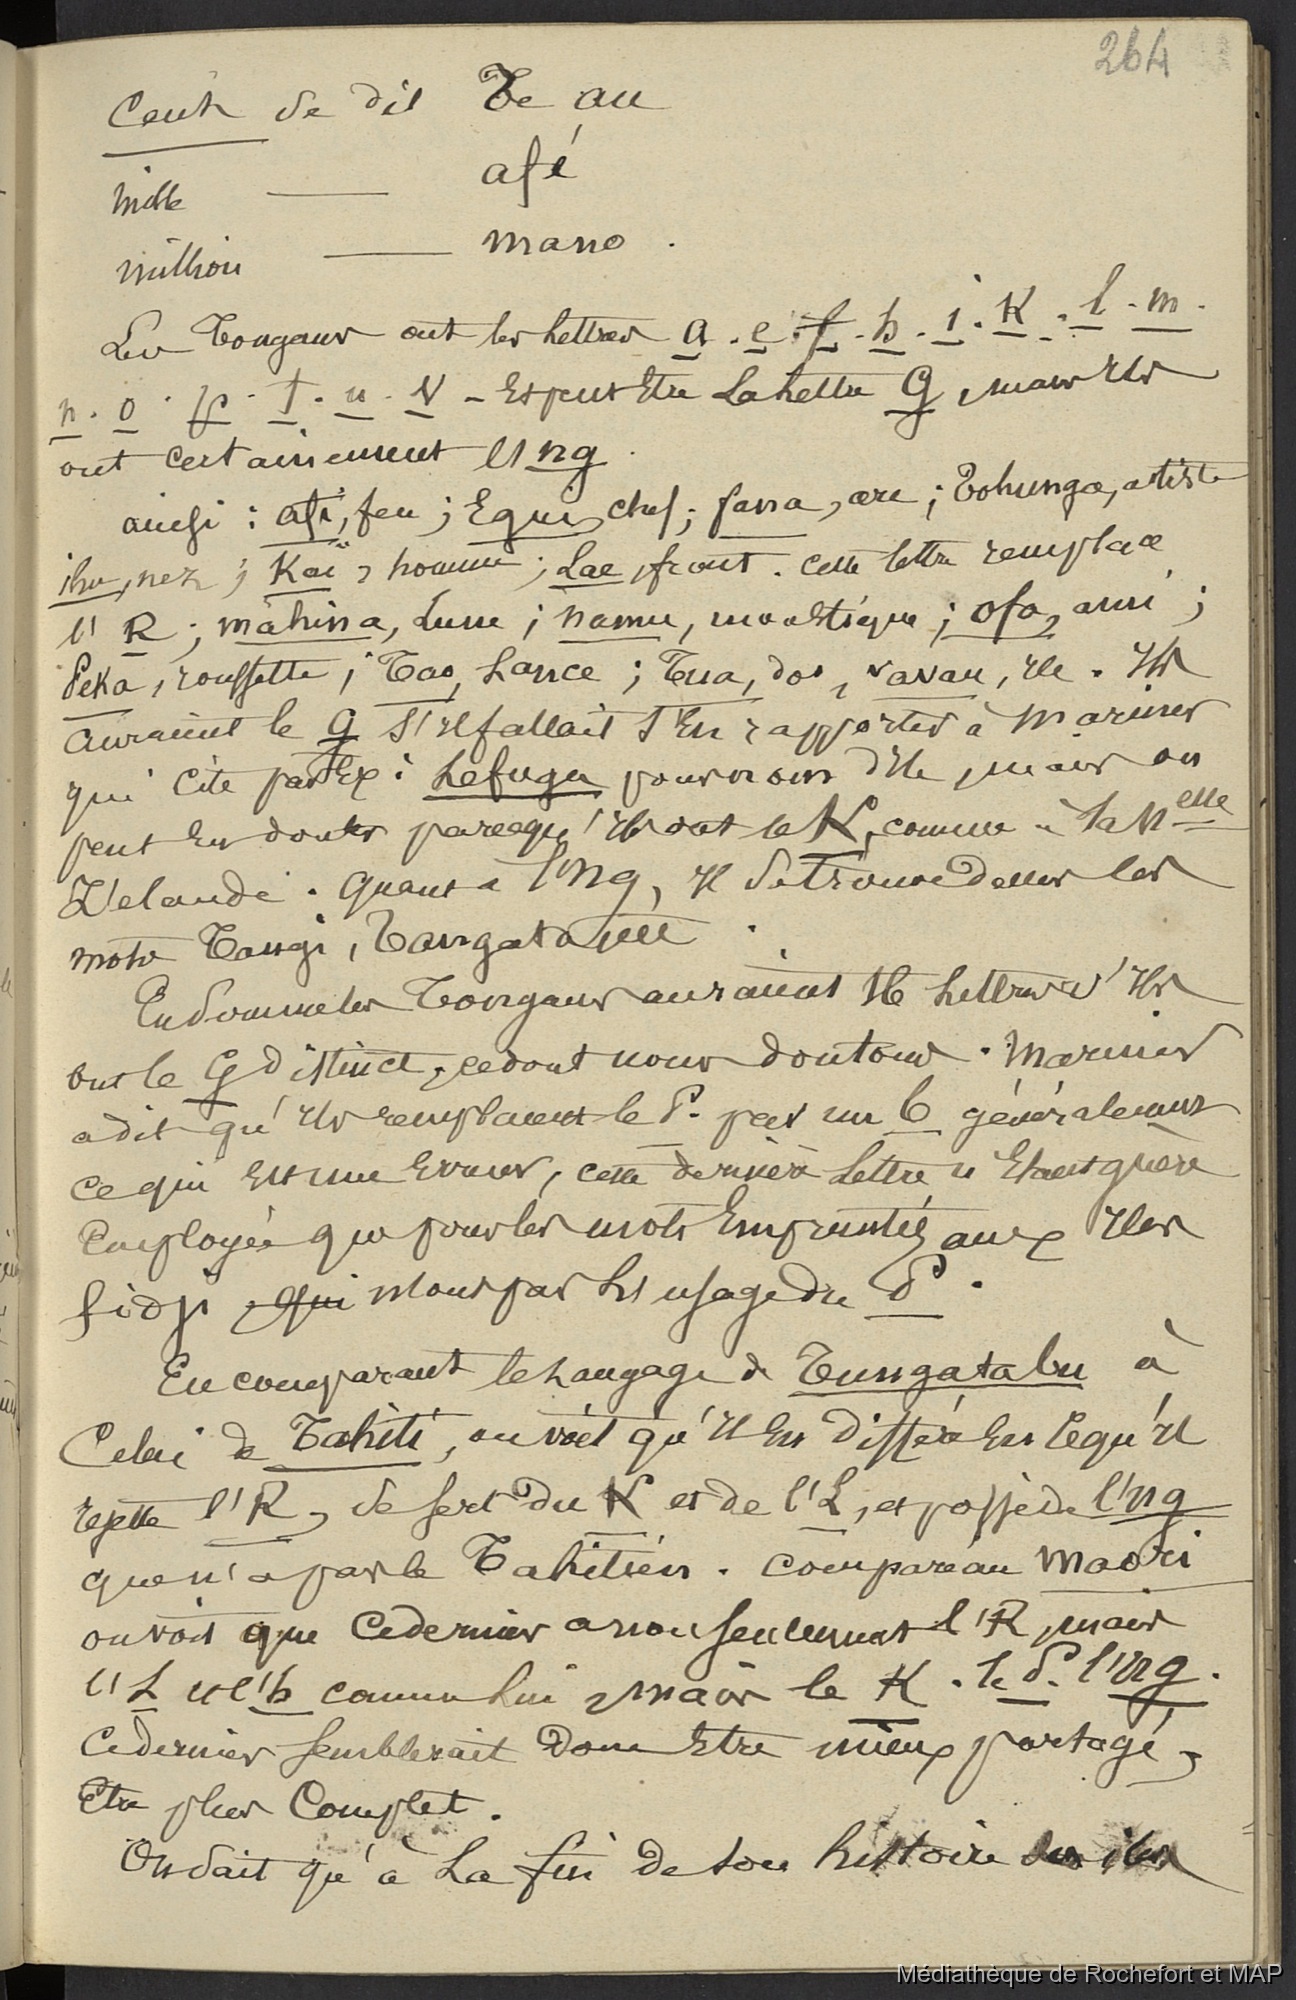 264
Cent se dit Te au
mille —— afé
million —— mano .
Les Tongans ont les lettres a . e . f . h . i . K . l . m .
n . o . p . t . u . V - Et peut être la lettre G, mais ils
ont certainement l'ng .
ainsi : afi, feu ; Egui, chef ; fana, arc ; Tohunga, artiste
ihu, nez ; Kaï, homme ; Lae, front . cette lettre remplace
l' R ; mahina, Lune ; namu, moustique ; ofo, ami ;
Peka, roussette ; Tao, Lance ; Tua, dos, vavau, ile . Ils
auraient le G s'il fallait s'en rapporter à Mariner
qui cite par Ex : Lefuga pour nom d'Ile, mais on
peut en douter parcequ'ils ont le K, comme à la Nelle
Zelande . Quant à l'ng, il se trouve dans les
mots Tangi, Tangata
En somme les Tongans auraient 16 lettres s'ils
ont le G distinct, ce dont nous doutons . Mariner
a dit qu'ils remplacent le P. par un b généralement
ce qui est une Erreur, cette dernière lettre n'Etant guère
Employée que pour les mots Empruntés aux Iles
fidji qui n'ont pas l'usage du P .
En comparant le Langage de Tungatabu à
Celui de Tahiti, on voit qu'il En diffère En ce qu'il
rejette l'R, se sert du K et de l'L, et possède l'ng
que n'a pas le Tahitien . Comparé au Maori
on voit que ce dernier a non seulement l'R, mais
l'L et l'h comme lui, mais le K . le P. l'ng .
Ce dernier semblerait donc Etre mieux partagé,
Etre plus Complet .
On sait qu'à la fin de son histoire des iles
Médiathèque de Rochefort et MAP